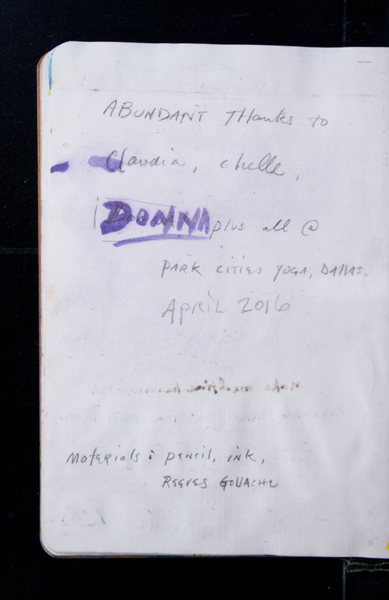 ABUNDANT Thanks to
Claudia, chelle,
DONNA plus all @
PARK CITIES YOGA, DALLAS.
APRIL 2016
Materials: pencil, ink,
REEVES GOUACHE